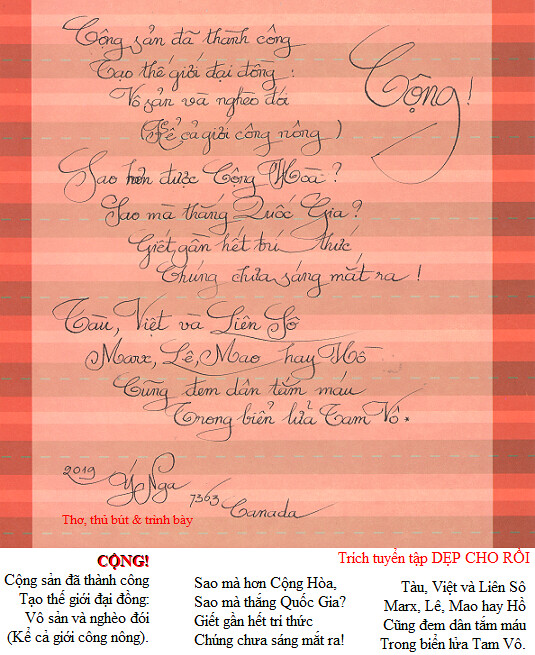 Cộng!
Cộng sản đã thành công
Tạo thế giới đại đồng:
Vô sản và nghèo đói
(Kể cả giới công nông)
Sao hơn được Cộng Hoà?
Sao mà thắng Quốc Gia?
Giết gần hết trí thức
Chúng chưa sáng mắt ra!
Tàu, Việt và Liên Sô
Marx, Lê, Mao hay Hồ
Cũng đem dân tắm máu
Trong biển lửa Tam Vô.
2019 Ý Nga 7363 Canada
Thơ, thủ bút & trình bày
CỘNG!
Cộng sản đã thành công
Tạo thế giới đại đồng:
Vô sản và nghèo đói
(Kể cả giới công nông).
Sao mà hơn Cộng Hòa,
Sao mà thắng Quốc Gia?
Giết gần hết trí thức
Chúng chưa sáng mắt ra!
Trích tuyển tập DẸP CHO RỒI
Tàu, Việt và Liên Sô
Marx, Lê, Mao hay Hồ
Cũng đem dân tắm máu
Trong biển lửa Tam Vô.